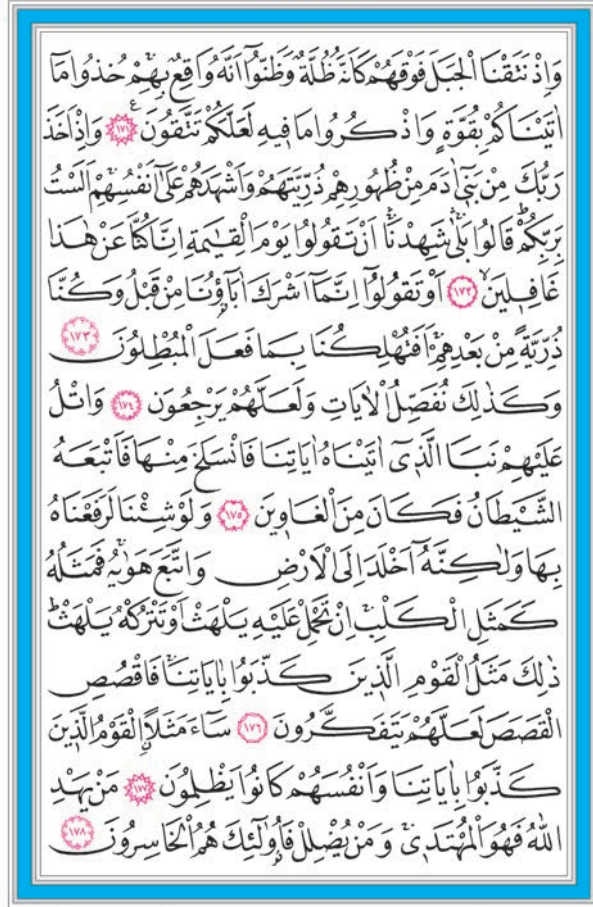 وَاِذْ نَتَقْنَا الْجَبَلَ فَوْقَهُمْ كَاَنَّهُ ظُلَّةٌ وَظَنُّٓوا اَنَّهُ وَاقِعٌ بِهِمْۚ خُذُوا مَٓا
اٰتَيْنَاكُمْ بِقُوَّةٍ وَاذْكُرُوا مَا فٖيهِ لَعَلَّكُمْ تَتَّقُونَࣖ ﴿١٧١﴾ وَاِذْ اَخَذَ
رَبُّكَ مِنْ بَنٖٓي اٰدَمَ مِنْ ظُهُورِهِمْ ذُرِّيَّتَهُمْ وَاَشْهَدَهُمْ عَلٰٓى اَنْفُسِهِمْۚ اَلَسْتُ
بِرَبِّكُمْؕ قَالُوا بَلٰىۚۛ شَهِدْنَاۚۛ اَنْ تَقُولُوا يَوْمَ الْقِيٰمَةِ اِنَّا كُنَّا عَنْ هٰذَا
غَافِلٖينَۙ ﴿١٧٢﴾ اَوْ تَقُولُٓوا اِنَّمَٓا اَشْرَكَ اٰبَٓاؤُ۬نَا مِنْ قَبْلُ وَكُنَّا
ذُرِّيَّةً مِنْ بَعْدِهِمْۚ اَفَتُهْلِكُنَا بِمَا فَعَلَ الْمُبْطِلُونَ ﴿١٧٣﴾
وَكَذٰلِكَ نُفَصِّلُ الْاٰيَاتِ وَلَعَلَّهُمْ يَرْجِعُونَ ﴿١٧٤﴾ وَاتْلُ
عَلَيْهِمْ نَبَاَ الَّذٖٓي اٰتَيْنَاهُ اٰيَاتِنَا فَانْسَلَخَ مِنْهَا فَاَتْبَعَهُ
الشَّيْطَانُ فَكَانَ مِنَ الْغَاوٖينَ ﴿١٧٥﴾ وَلَوْ شِئْنَا لَرَفَعْنَاهُ
بِهَا وَلٰكِنَّهُٓ اَخْلَدَ اِلَى الْاَرْضِ وَاتَّبَعَ هَوٰيهُۚ فَمَثَلُهُ
كَمَثَلِ الْكَلْبِۚ اِنْ تَحْمِلْ عَلَيْهِ يَلْهَثْ اَوْ تَتْرُكْهُ يَلْهَثْؕ
ذٰلِكَ مَثَلُ الْقَوْمِ الَّذٖينَ كَذَّبُوا بِاٰيَاتِنَاۚ فَاقْصُصِ
الْقَصَصَ لَعَلَّهُمْ يَتَفَكَّرُونَ ﴿١٧٦﴾ سَٓاءَ مَثَلاًۨ الْقَوْمُ الَّذٖينَ
كَذَّبُوا بِاٰيَاتِنَا وَاَنْفُسَهُمْ كَانُوا يَظْلِمُونَ ﴿١٧٧﴾ مَنْ يَهْدِ
اللّٰهُ فَهُوَ الْمُهْتَدٖيۚ وَمَنْ يُضْلِلْ فَاُو۬لٰٓئِكَ هُمُ الْخَاسِرُونَ ﴿١٧٨﴾